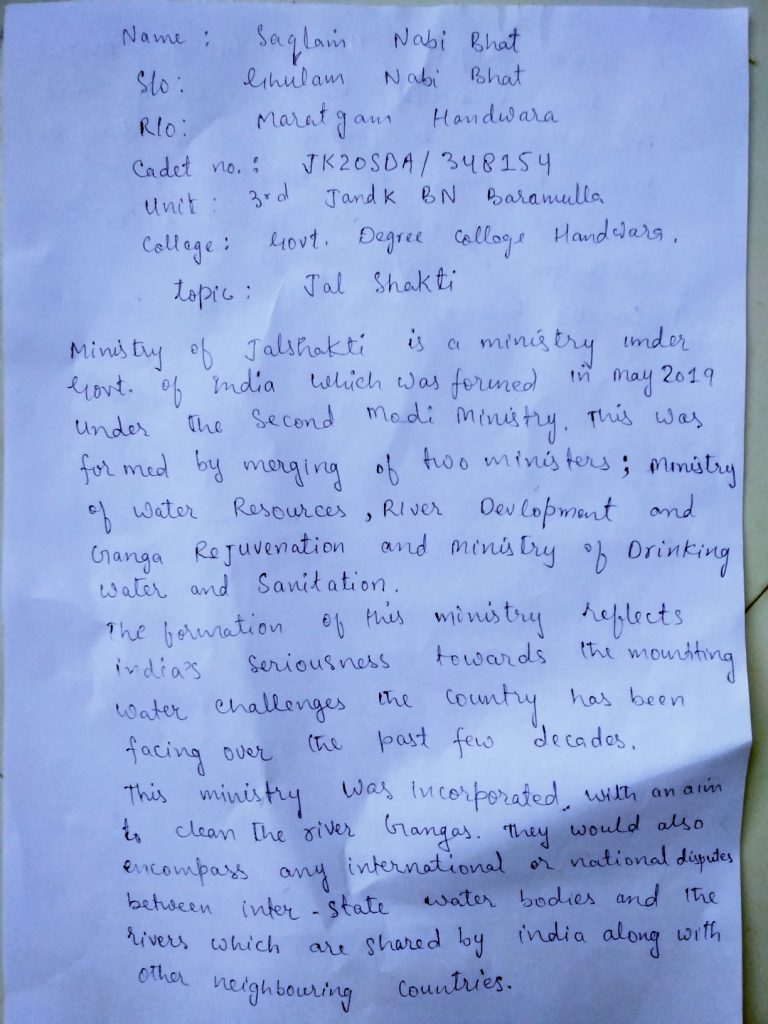 Name : Saqlain Nabi Bhat
S/o : Ghulam Nabi Bhat
R/o : Maratgam Handwara
Cadet no. : JK20SDA/348154
Unit : 3rd JandK BN Baramulla
College : Govt. Degree College Handwara.
topic : Jal Shakti
Ministry of Jalshakti is a ministry under
Govt. of India which was formed in may 2019
under the Second Modi Ministry. This was
formed by merging of two ministers ; Ministry
of Water Resources , River Devlopment and
Ganga Rejuvenation and Ministry of Drinking
Water and Sanitation.
The formation of this ministry reflects
india's seriousness towards the mounting
water challenges the country has been
facing over the past few decades.
This ministry was incorporated with an aim
to clean the river Gangas. They would also
encompass any international or national disputes
between inter-state water bodies and the
rivers which are shared by india along with
other neighbouring countries.